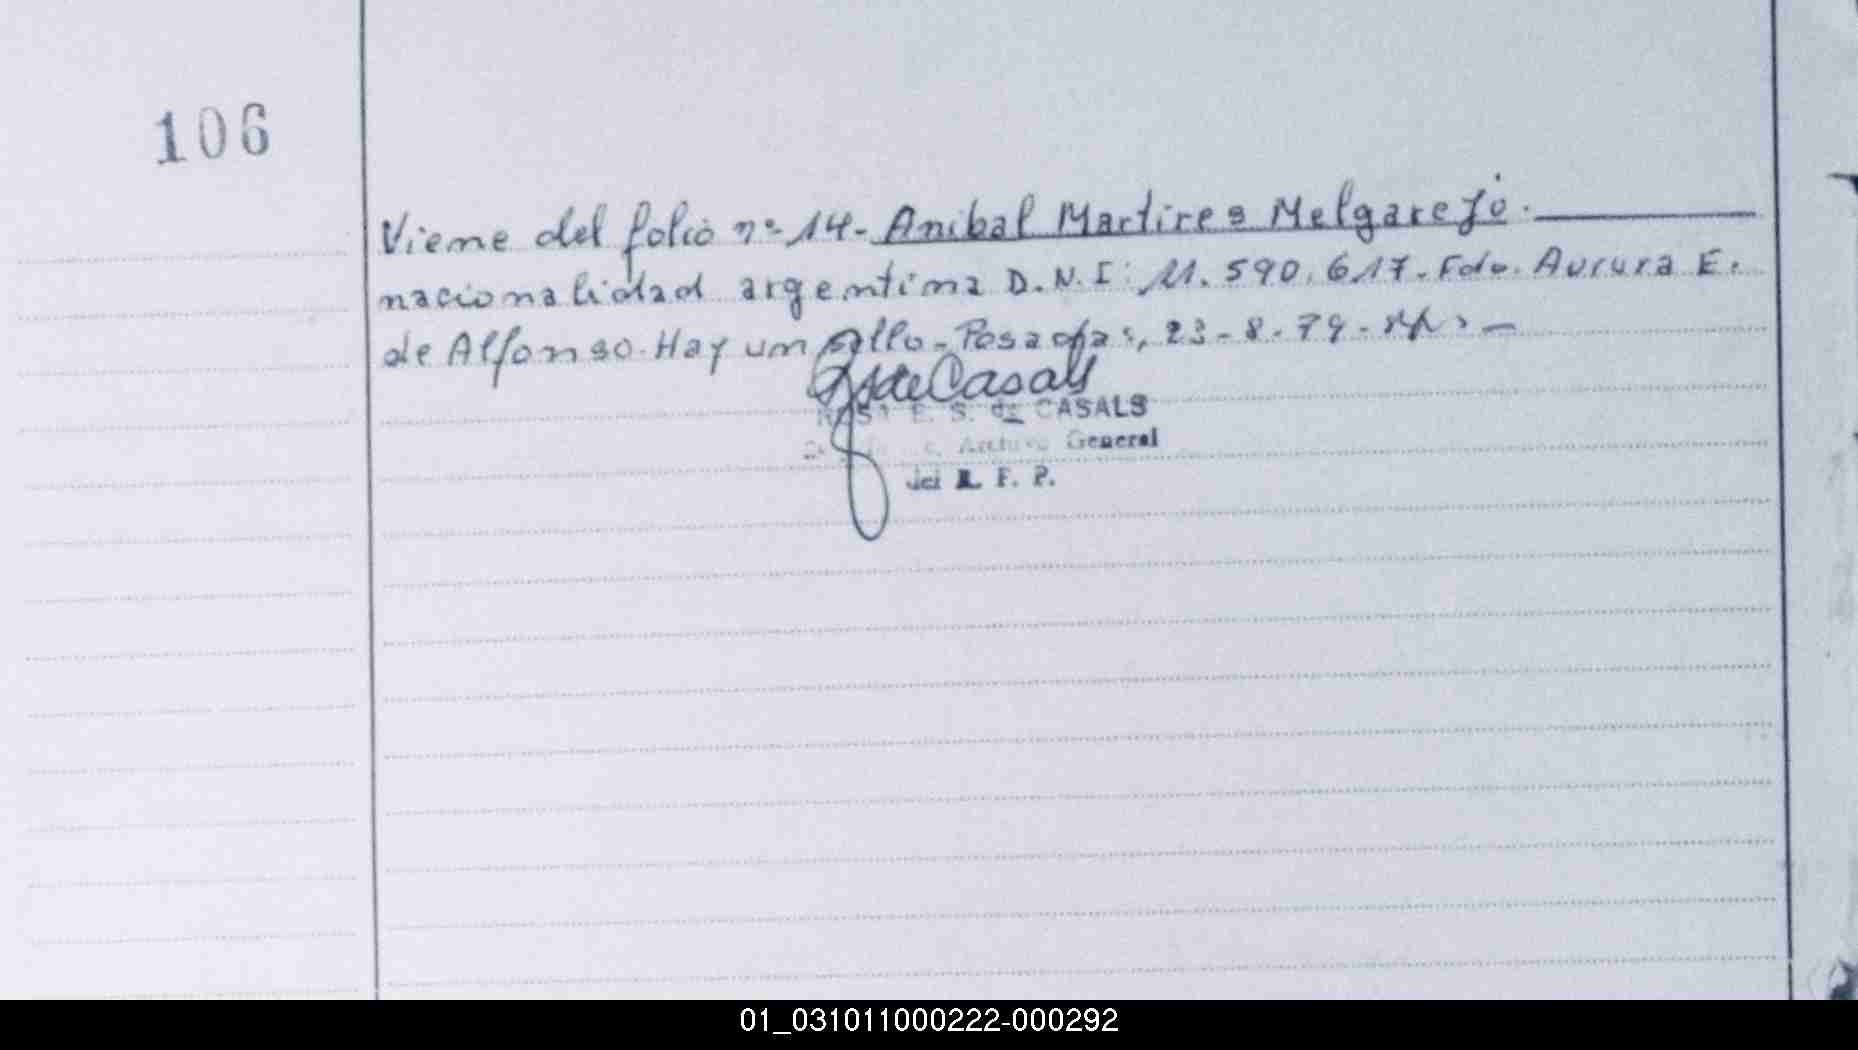 106
Viene del folio nº 14- Anibal Martires Melgarejo.
nacionalidad argentina D.N.I: 11.590.617. Fdo. Aurora E.
de Alfonso. Hay un sello. Posadas, 23-8-79-
de Casals
ROSA E. S. de CASALS
Archivo General
del R. P. P.
01_031011000222-000292